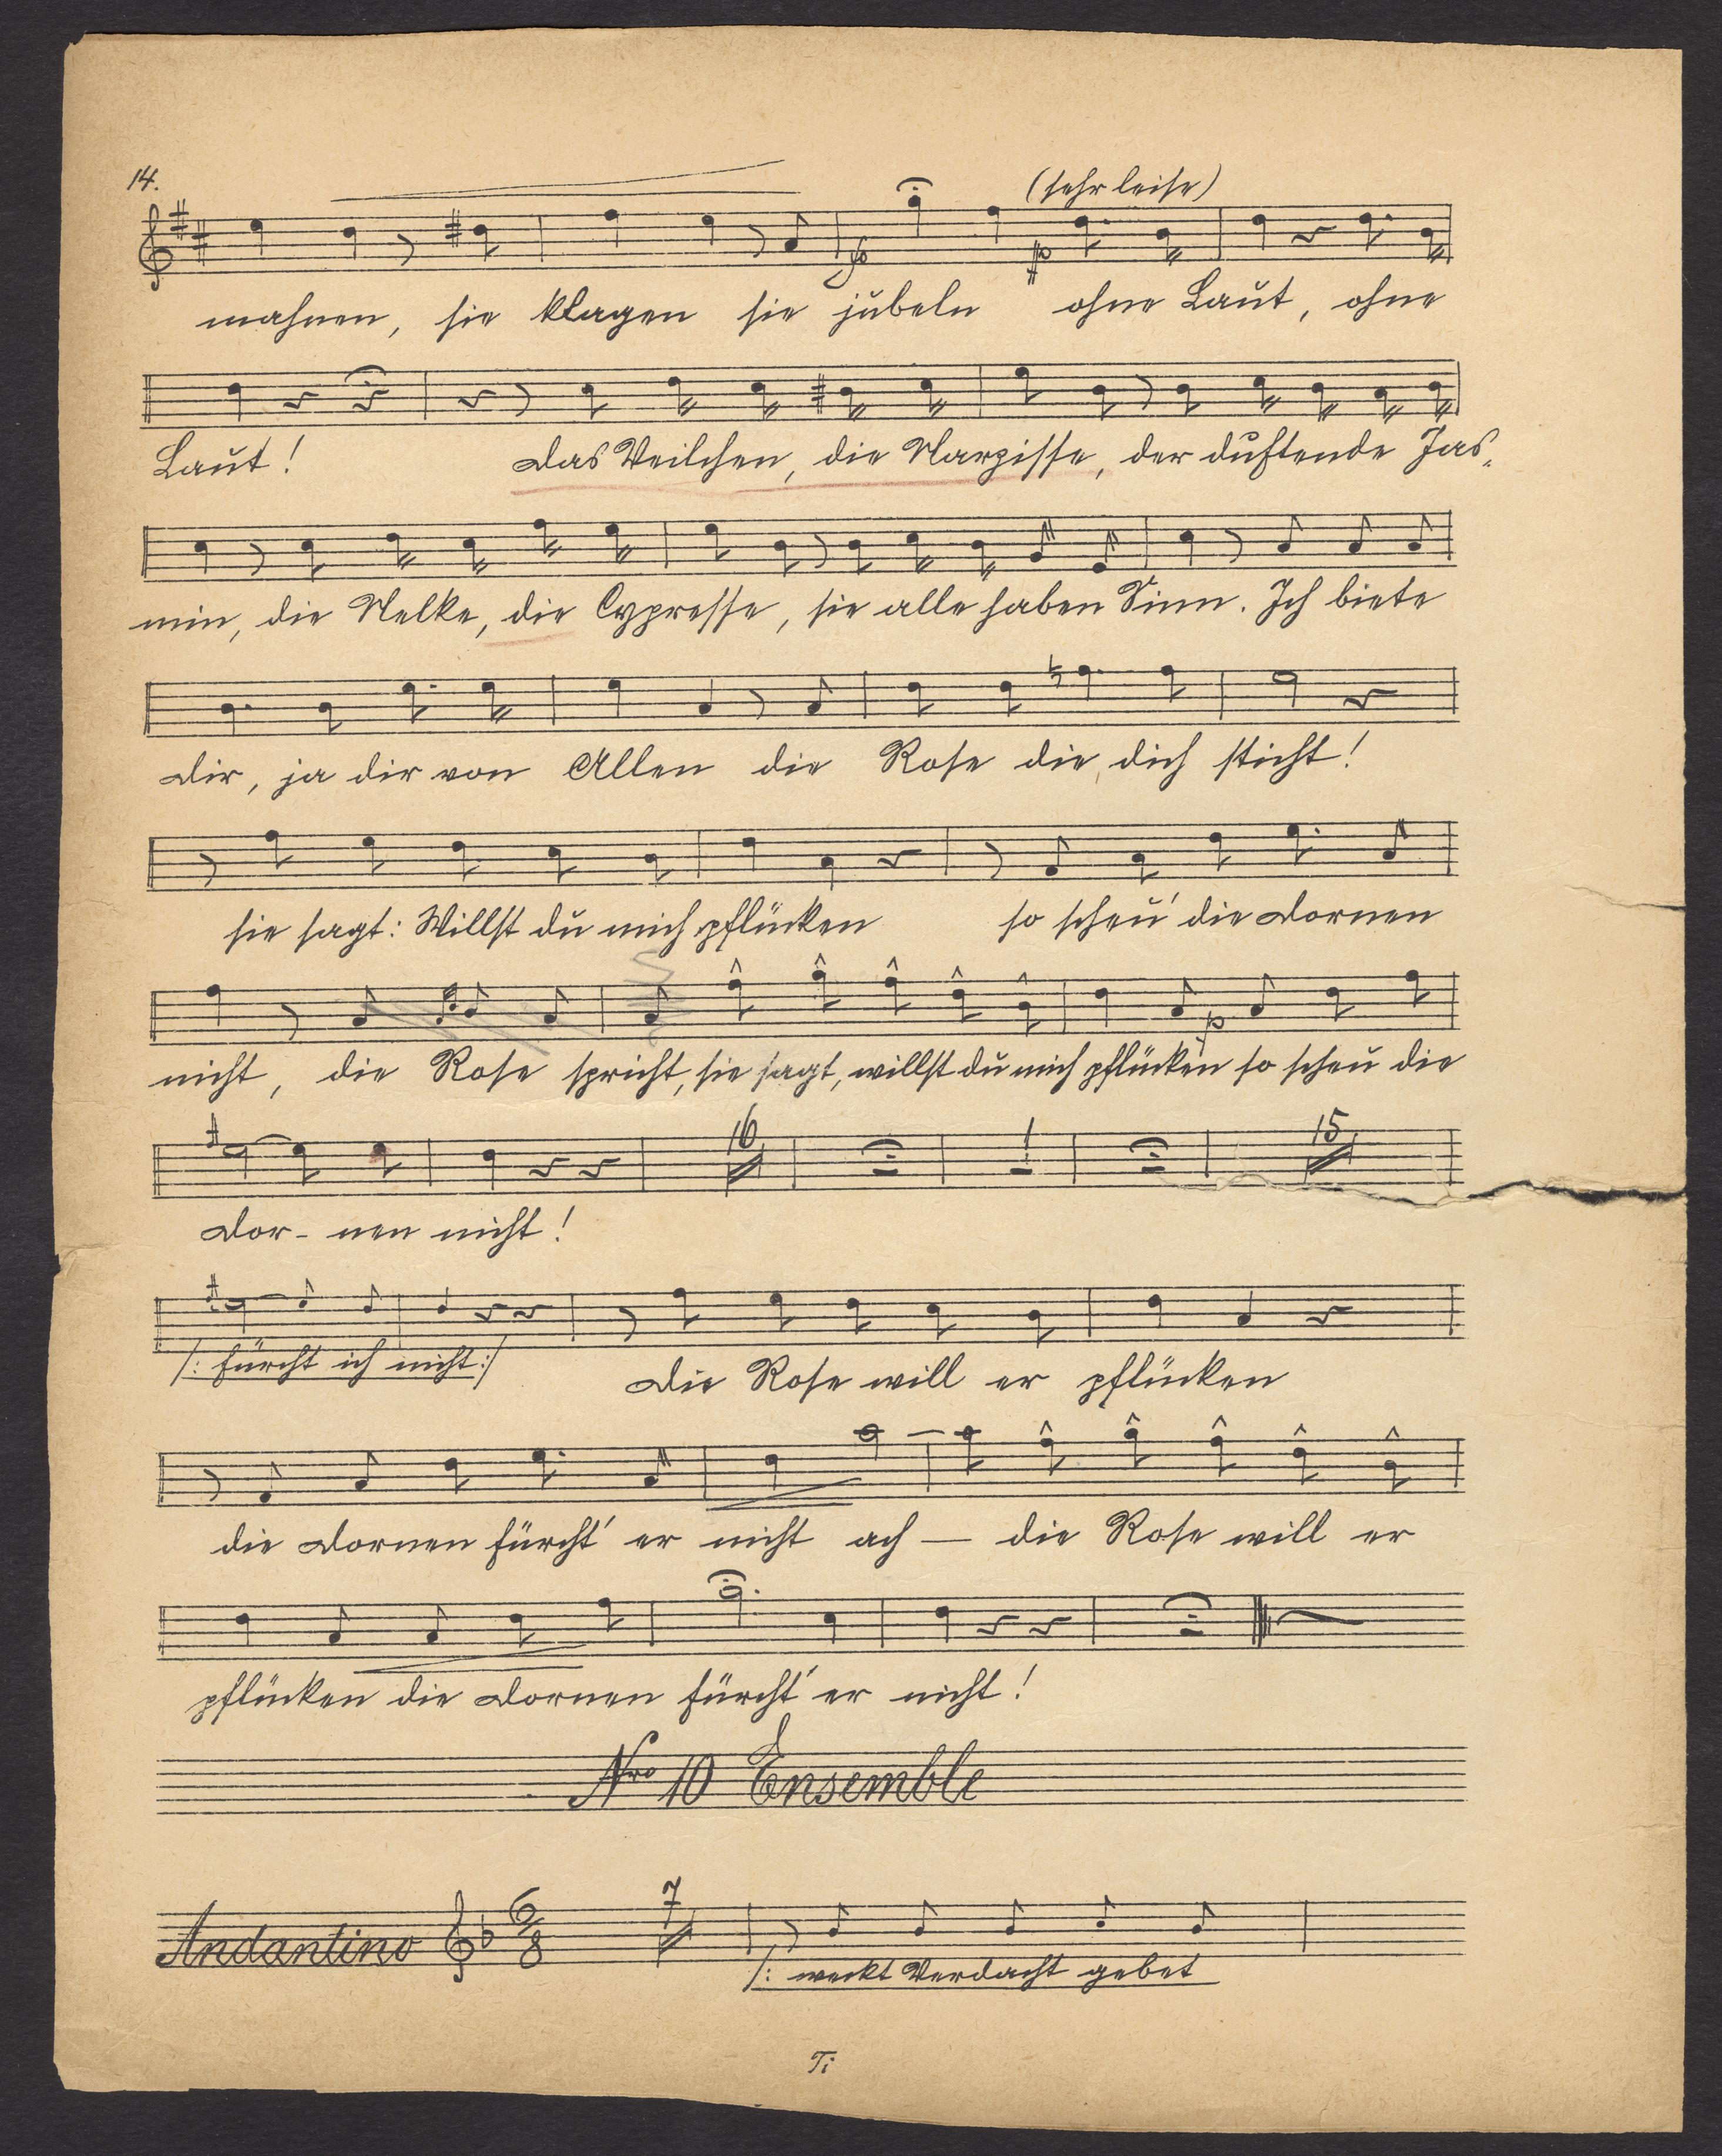 14.
(sehr leise)
mahnen, sie klagen sie jubeln ohne Laut, ohne
Laut! das Veilchen, die Narzisse, der duftende Jas-
min, die Nelke, die Cypresse, sie alle haben Sinn. Ich biete
dir, ja dir von Allen die Rose die dich sticht!
sie sagt: Willst du mich pflücken so scheu' die Dornen
nicht, die Rose spricht, sie sagt, willst du mich pflücken so scheu die
16 1 15
Dor- nen nicht!
/: fürcht ich nicht :/ die Rose will er pflücken
die Dornen fürcht' er nicht ach — die Rose will er
pflücken die Dornen fürcht' er nicht!
Nro 10 Ensemble
Andantino 6/8 7
/: weckt Verdacht gebet
Ti